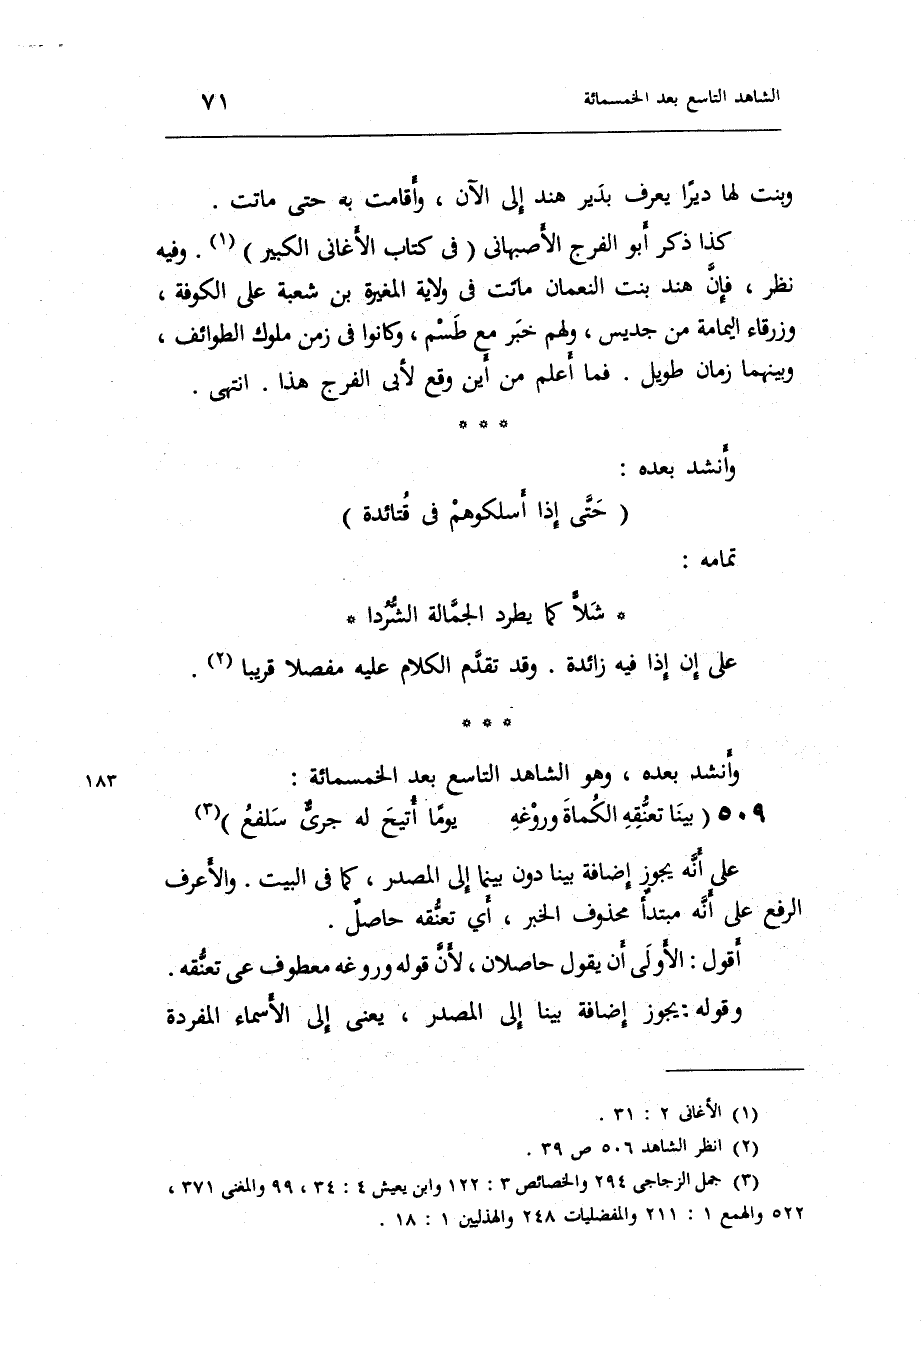 الشاهد التاسع بعد الخمسمائة ٧١
وبنت لها ديرًا يعرف بدَير هند إلى الآن ، وأقامت به حتى ماتت .
كذا ذكر أبو الفرج الأصبهانى ( فى كتاب الأغانى الكبير ) (١) . وفيه
نظر ، فإنَّ هند بنت النعمان ماتت فى ولاية المغيرة بن شعبة على الكوفة ،
وزرقاء اليمامة من جديس ، ولهم خبَر مع طَسْم ، وكانوا فى زمن ملوك الطوائف ،
وبينهما زمان طويل . فما أعلم من أين وقع لأبى الفرج هذا . انتهى .
* * *
وأنشد بعده :
( حَتَّى إذا أسلكوهمْ فى قُتائدة )
تمامه :
* شَلاًّ كما يطرد الجمَّالة الشُّرُدا *
على إن إذا فيه زائدة . وقد تقدَّم الكلام عليه مفصلا قريبا (٢) .
* * *
وأنشد بعده ، وهو الشاهد التاسع بعد الخمسمائة : ١٨٣
٥٠٩ ( بينَا تعنُّقِهِ الكُماةَ وروْغهِ يومًا أُتيحَ له جرىٌّ سَلفعُ )(٣)
على أنَّه يجوز إضافة بينا دون بينما إلى المصدر ، كما فى البيت . والأعرف
الرفع على أنَّه مبتدأٌ محذوف الخبر ، أي تعنُّقه حاصلٌ .
أقول : الأولَى أن يقول حاصلان ، لأنَّ قوله وروغه معطوف عى تعنُّقه .
وقوله : يجوز إضافة بينا إلى المصدر ، يعنى إلى الأسماء المفردة
(١) الأغانى ٢ : ٣١ .
(٢) انظر الشاهد ٥٠٦ ص ٣٩ .
(٣) جمل الزجاجى ٢٩٤ والخصائص ٣ : ١٢٢ وابن يعيش ٤ : ٣٤ ، ٩٩ والمغنى ٣٧١ ،
٥٢٢ والهمع ١ : ٢١١ والمفضليات ٢٤٨ والهذليين ١ : ١٨ .